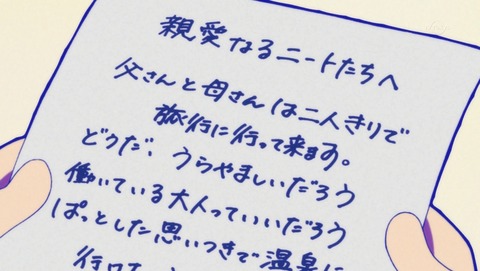 親愛なるニートたちへ
父さんと母さんは二人きりで
旅行に行って来ます。
どうだ、うらやましいだろう
働いている大人っていいだろう
ぱっとした思いつきで温泉に